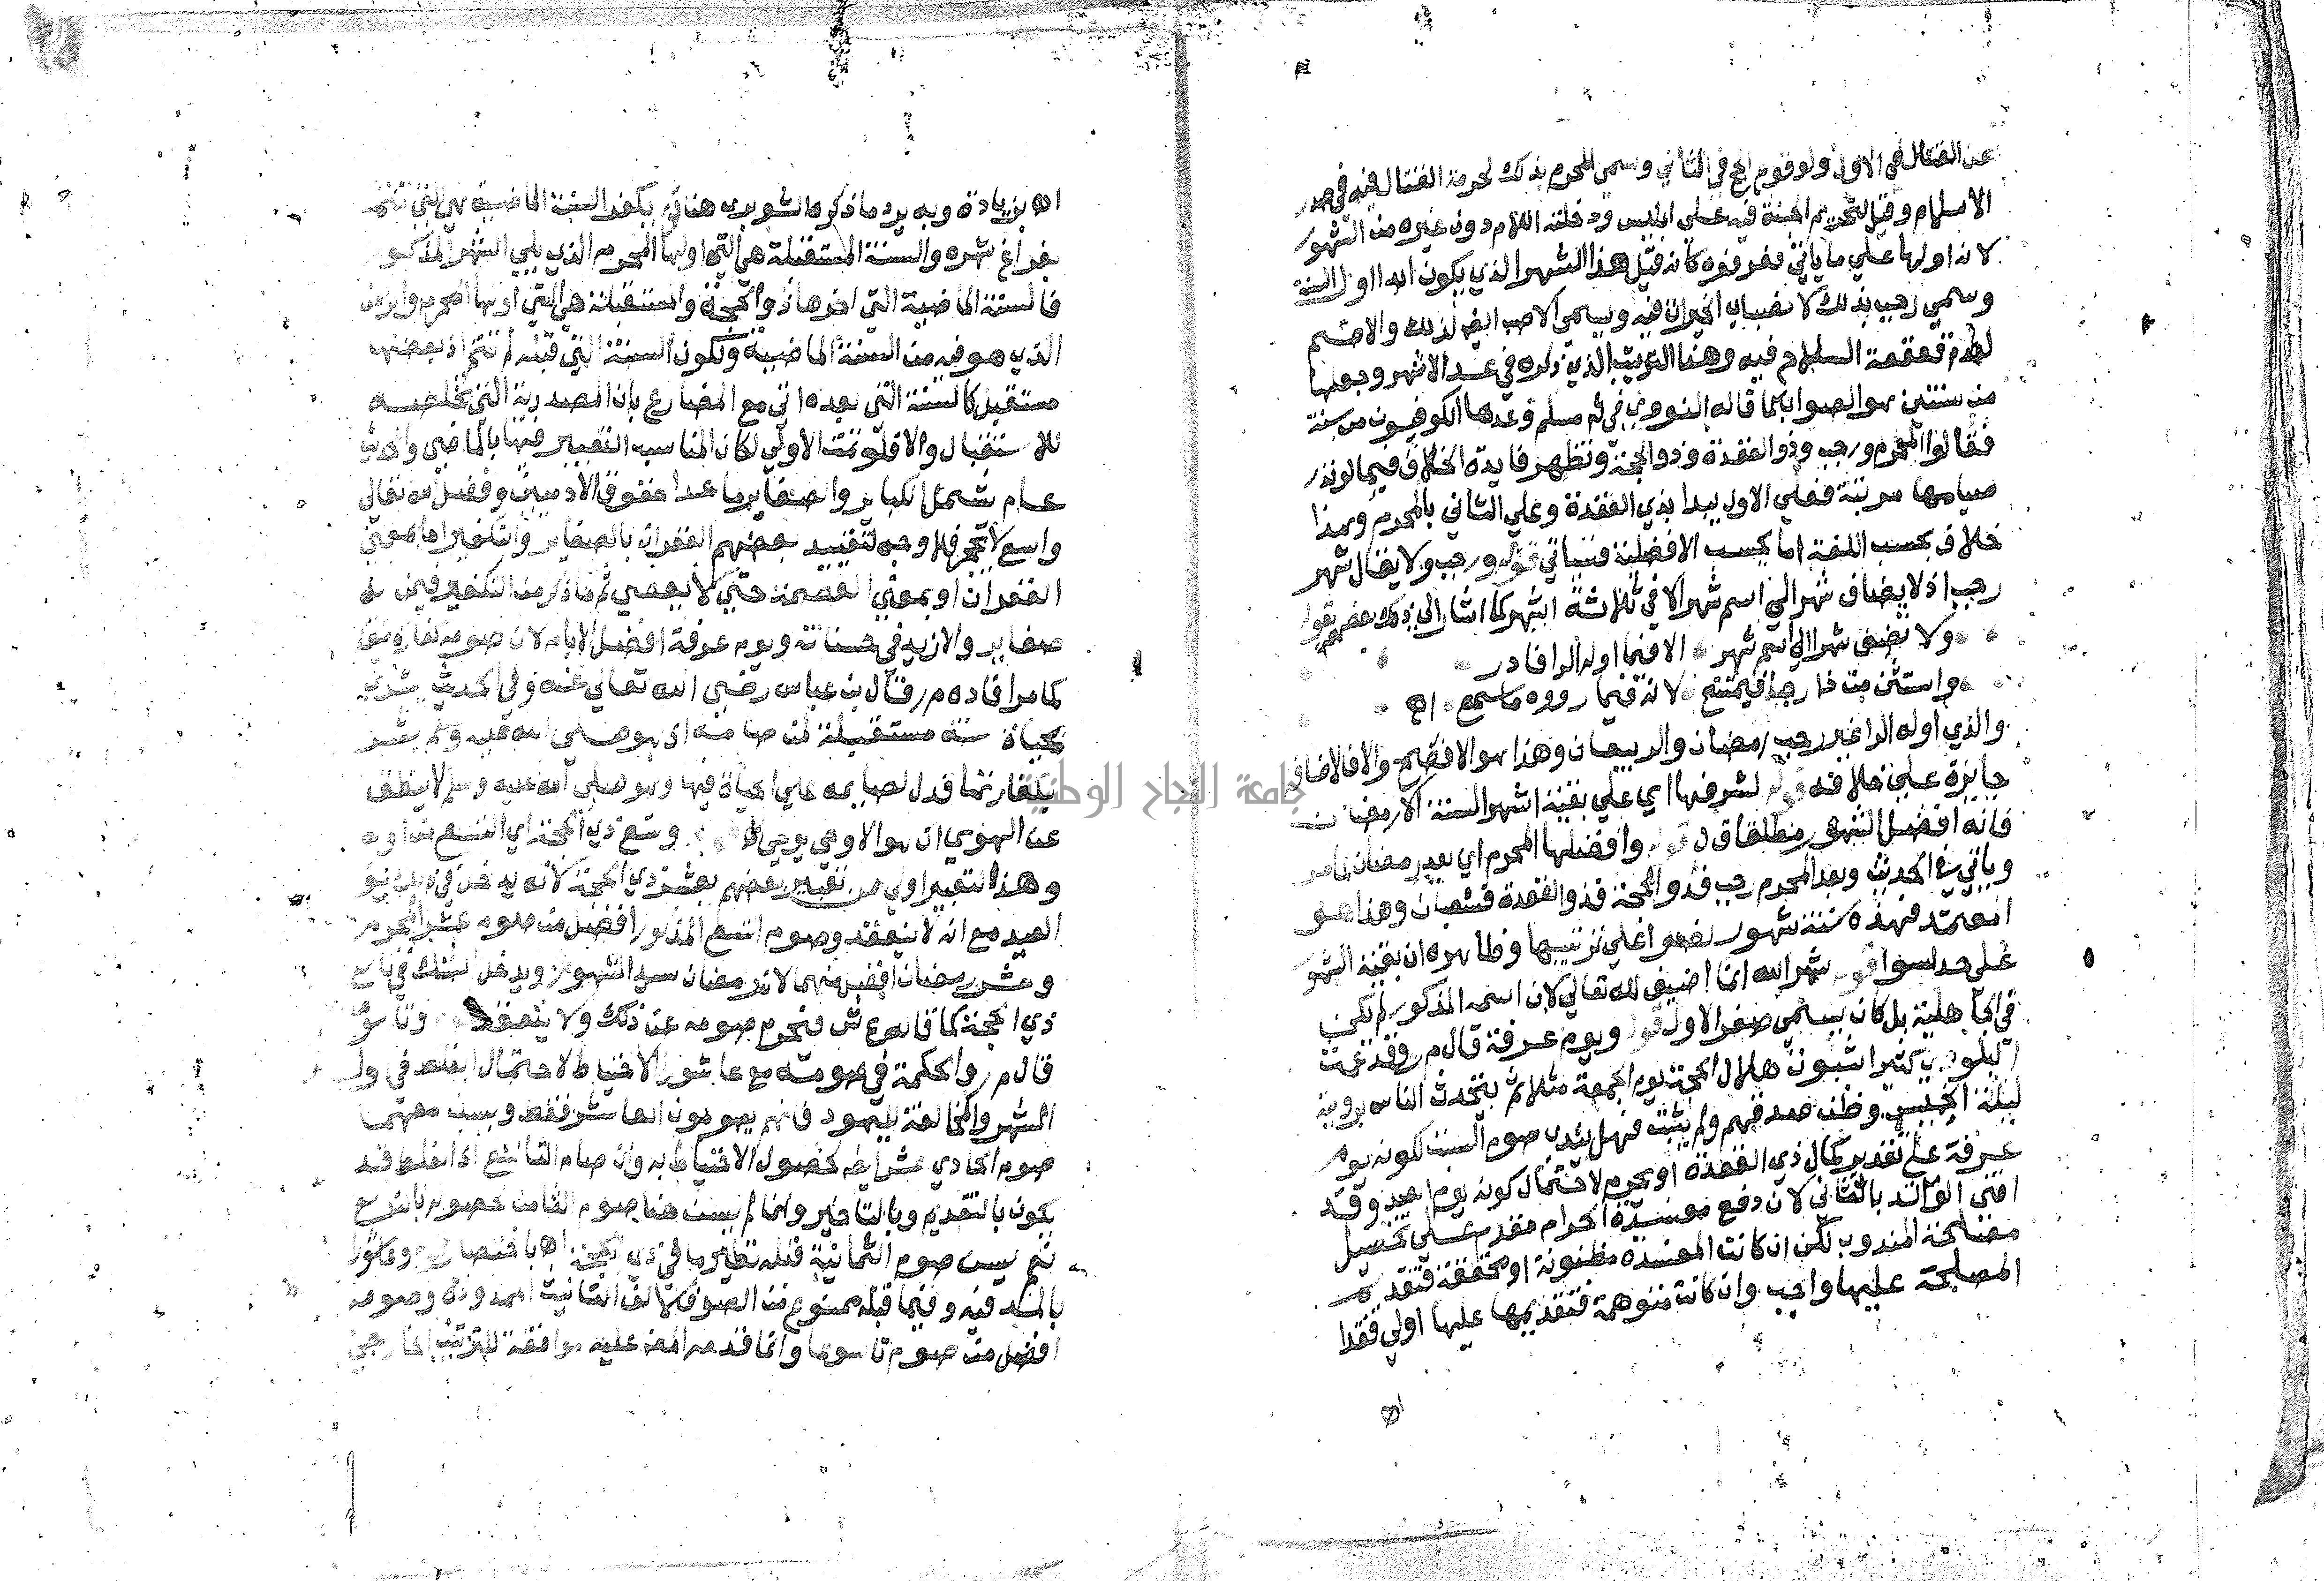 عن القتال في الاول ولوقوع الحج في الثاني وسمي المحرم بذلك لحرمة القتال فيه في صدر
الاسلام وقيل لتحريم الجنة فيه على ابليس ودخلته اللام دون غيره من الشهور
لانه اولها على ما ياتي فعرفوه كانه قيل هذا الشهر الذي يكون ابدا اول السنة
وسمي رجب بذلك لانصباب الخيرات فيه ويسمى الاصب ايضا لذلك والاصم
لعدم قعقعة السلاح فيه وهذا الترتيب الذي ذكره في عد الاشهر وجعلها
من سنتين هو الصواب كما قاله النووي في شرح مسلم وعدها الكوفيون من سنة
فقالوا المحرم ورجب وذو القعدة وذو الحجة وتظهر فايدة الخلاف فيما لو نذر
صيامها مرتبة فعلى الاول يبدا بذي القعدة وعلى الثاني بالمحرم وهذا
خلاف بحسب اللغة اما بحسب الافضلية فسياتي قوله ورجب ولا يقال شهر
رجب اذ لا يضاف شهر الى اسم شهر الا في ثلاثة اشهر كما اشار الى ذلك بعضهم بقوله
ولا تضف شهرا الى اسم شهر الا فيما اوله الرا فادر
واستثن من ذا رجبا فيمتنع لانه فيما رووه ما سمع اه
والذي اوله الرا غير رجب رمضان والربيعان وهذا هو الافصح والا فالاضافة
جايزة على خلافه قوله لشرفها اي على بقية اشهر السنة الا رمضان
فانه افضل الشهور مطلقا ق ل قوله وافضلها المحرم اي بعد رمضان لما مر
وياتي في الحديث وبعد المحرم رجب فذو الحجة فذو القعدة فشعبان وهذا هو
المعتمد فهذه ستة شهور نصوا على ترتيبها وظاهره ان بقية الشهور
على حد سوا قوله شهر الله انما اضيف لله تعالى لان اسمه المذكور لم يكن
في الجاهلية بل كان يسمى صفر الاول قوله ويوم عرفة قال م ر وقد عمت
البلوى كثيرا بثبوت هلال الحجة يوم الجمعة مثلا ثم يتحدث الناس برويته
ليلة الخميس وظن صدقهم ولم يثبت فهل يندب صوم السبت لكونه يوم
عرفة على تقدير كمال ذي القعدة او يحرم لاحتمال كونه يوم العيد وقد
افتى الوالد بالثاني لان دفع مفسدة الحرام مقدم على تحصيل
مصلحة المندوب لكن ان كانت المفسدة مظنونة او محققة فتقديم
المصلحة عليها واجب وان كانت متوهمة فتقديمها عليها اولى فقدا
اه بزيادة وبه يرد ما ذكره الشوبري هنا قوله يكفر السنة الماضية هي التي تتم
بفراغ شهره والسنة المستقبلة هي التي اولها المحرم الذي يلي الشهر المذكور
فالسنة الماضية التي اخرها ذو الحجة والمستقبلة هي التي اولها المحرم
الذي هو فيه من السنة الماضية ولكون السنة التي قبله لم تتم اذ بعضها
مستقبل كالسنة التي بعده اتى مع المضارع بان المصدرية التي تخلصه
للاستقبال والا فلو تمت الاولى لكان المناسب التعبير فيها بالماضي والحديث
عام يشمل الكباير والصغاير ما عدا حقوق الادميين وفضل الله تعالى
واسع لا يحجر فلا وجه لتقييد بعضهم الغفران بالصغاير والتكفير اما بمعنى
الغفران او بمعنى العصمة حتى لا يعصي ثم ما ذكر من التكفير فيمن له
صغاير والا زيد في حسناته ويوم عرفة افضل الايام لان صومه كفارة سنتين
كما مر افاده م ر قال بن عباس رضي الله تعالى عنه وفي الحديث بشرى
بحياة سنة مستقبلة لمن صامه اذ هو صلى الله عليه وسلم بشر
بكفارتها فدل لصايمه على الحياة فيها وهو صلى الله عليه وسلم لا ينطق
عن الهوى ان هو الا وحي يوحى اه قوله وتسع ذي الحجة اي التسع من اوله
وهذا التعبير اولى من تعبير بعضهم بعشر ذي الحجة لانه يدخل في ذلك يوم
العيد مع انه لا ينعقد وصوم التسع المذكور افضل من صوم عشر المحرم
وعشر رمضان افضل منهما لان رمضان سيد الشهور ويدخل الشك في تاسع
ذي الحجة كما قاله ع ش فيحرم صومه عن ذلك ولا ينعقد قوله وتاسوعا
قال م ر والحكمة في صومه مع عاشورا الاحتياط لاحتمال الغلط في اول
الشهر والمخالفة لليهود فانهم يصومون العاشر فقط ويسن معهما
صوم الحادي عشر ايضا لحصول الاحتياط به وان صام التاسع اذ الغلط قد
يكون بالتقديم وبالتاخير وانما لم يسن هنا صوم الثامن لحصوله بالتاسع
نعم يسن صوم الثمانية قبله نظير ما في ذي الحجة اه باختصار قوله وعاشورا
بالمد فيه وفيما قبله ممنوع من الصرف لالف التانيث الممدودة وصومه
افضل من صوم تاسوعا وانما قدمه المص عليه موافقة للترتيب الخارجي
جامعة النجاح الوطنية